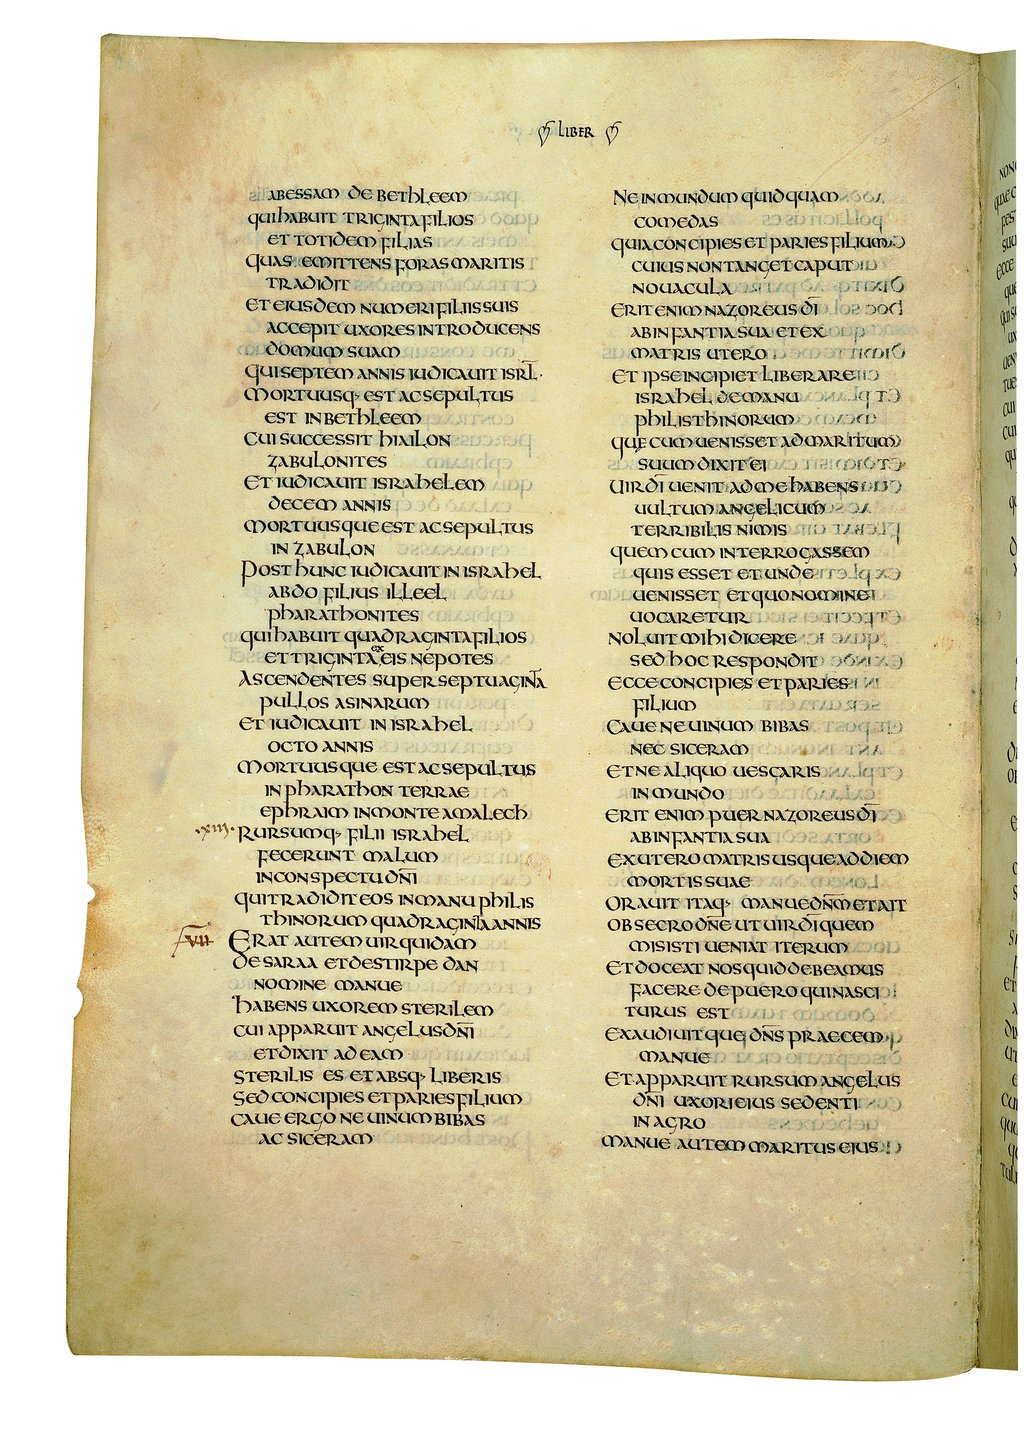 LIBER
ABESSAM DE BETHLEEM
QUI HABUIT TRIGINTA FILIOS
ET TOTIDEM FILIAS
QUAS EMITTENS FORAS MARITIS
TRADIDIT
ET EIUSDEM NUMERI FILIIS SUIS
ACCEPIT UXORES INTRODUCENS
DOMUM SUAM
QUI SEPTEM ANNIS IUDICAUIT ISRL̄·
MORTUUSQ· EST AC SEPULTUS
EST IN BETHLEEM
CUI SUCCESSIT HIAILON
ZABULONITES
ET IUDICAUIT ISRAHELEM
DECEM ANNIS
MORTUUSQUE EST AC SEPULTUS
IN ZABULON
POST HUNC IUDICAUIT IN ISRAHEL
ABDO FILIUS ILLEEL
PHARATHONITES
QUI HABUIT QUADRAGINTA FILIOS
ET TRIGINTA EX EIS NEPOTES
ASCENDENTES SUPER SEPTUAGINTA
PULLOS ASINARUM
ET IUDICAUIT IN ISRAHEL
OCTO ANNIS
MORTUUSQUE EST AC SEPULTUS
IN PHARATHON TERRAE
EPHRAIM IN MONTE AMALECH
·XIII· RURSUMQ· FILII ISRAHEL
FECERUNT MALUM
IN CONSPECTU DN̄I
QUI TRADIDIT EOS IN MANU PHILIS
THINORUM QUADRAGINTA ANNIS
VII ERAT AUTEM UIR QUIDAM
DE SARAA ET DE STIRPE DAN
NOMINE MANUE
HABENS UXOREM STERILEM
CUI APPARUIT ANGELUS DN̄I
ET DIXIT AD EAM
STERILIS ES ET ABSQ· LIBERIS
SED CONCIPIES ET PARIES FILIUM
CAUE ERGO NE UINUM BIBAS
AC SICERAM
NE INMUNDUM QUIDQUAM
COMEDAS
QUIA CONCIPIES ET PARIES FILIUM
CUIUS NON TANGET CAPUT
NOUACULA
ERIT ENIM NAZOREUS DĪ
AB INFANTIA SUA ET EX
MATRIS UTERO
ET IPSE INCIPIET LIBERARE
ISRAHEL DE MANU
PHILISTHINORUM
QUE CUM UENISSET AD MARITUM
SUUM DIXIT EI
UIR DĪ UENIT AD ME HABENS
UULTUM ANGELICUM
TERRIBILIS NIMIS
QUEM CUM INTERROGASSEM
QUIS ESSET ET UNDE
UENISSET ET QUO NOMINE
UOCARETUR
NOLUIT MIHI DICERE
SED HOC RESPONDIT
ECCE CONCIPIES ET PARIES
FILIUM
CAUE NE UINUM BIBAS
NEC SICERAM
ET NE ALIQUO UESCARIS
IN MUNDO
ERIT ENIM PUER NAZOREUS DĪ
AB INFANTIA SUA
EX UTERO MATRIS USQUE AD DIEM
MORTIS SUAE
ORAUIT ITAQ· MANUE DN̄M ET AIT
OBSECRO DN̄E UT UIR DĪ QUEM
MISISTI UENIAT ITERUM
ET DOCEAT NOS QUID DEBEAMUS
FACERE DE PUERO QUI NASCI
TURUS EST
EXAUDIUITQUE DN̄S PRAECEM
MANUE
ET APPARUIT RURSUM ANGELUS
DN̄I UXORI EIUS SEDENTI
IN AGRO
MANUE AUTEM MARITUS EIUS